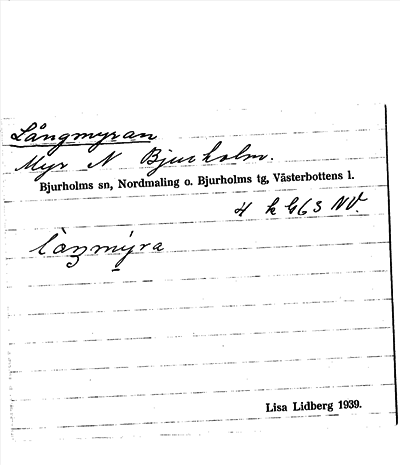 Långmyran
Myr N Bjurholm.
Bjurholms sn, Nordmaling o. Bjurholms tg, Västerbottens l.
4 k G63 NV.
Lisa Lidberg 1939.